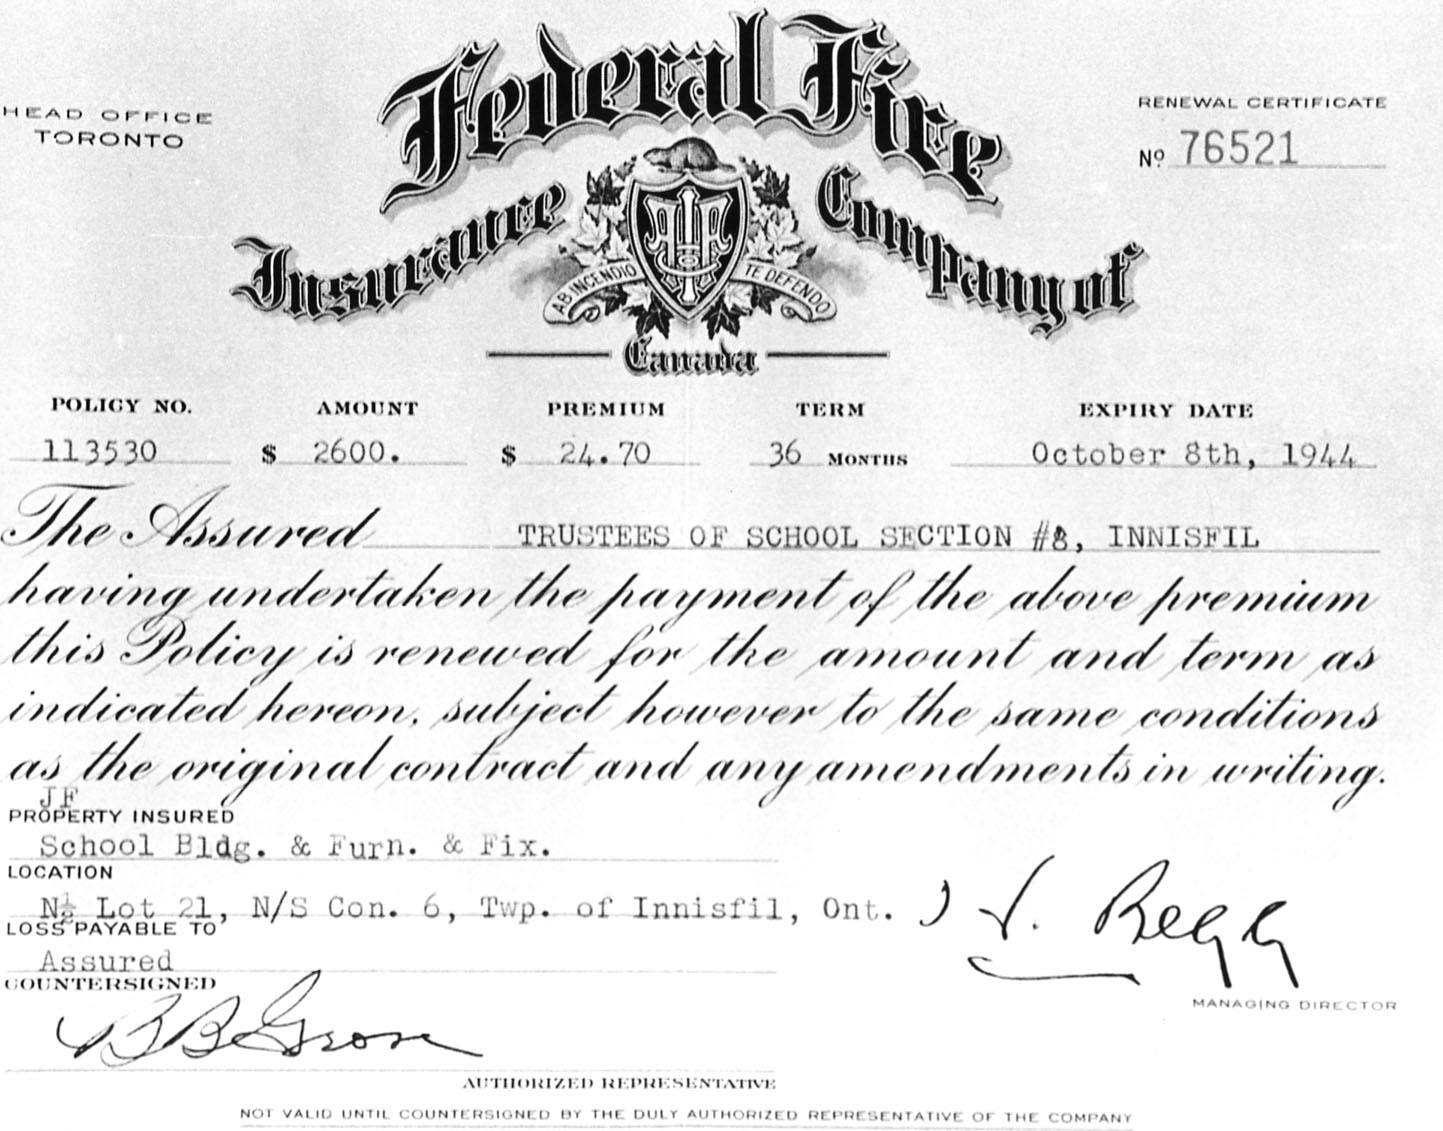 Federal Fire
HEAD OFFICE
TORONTO
RENEWAL CERTIFICATE
No. 76521
Insurance Company of
AB INCENDIO TE DEFENDO
Canada
POLICY NO. AMOUNT PREMIUM TERM EXPIRY DATE
113530 $ 2600. $ 24.70 36 MONTHS October 8th, 1944
The Assured TRUSTEES OF SCHOOL SECTION #8, INNISFIL
having undertaken the payment of the above premium
this Policy is renewed for the amount and term as
indicated hereon, subject however to the same conditions
as the original contract and any amendments in writing.
JF
PROPERTY INSURED
School Bldg. & Furn. & Fix.
LOCATION
N½ Lot 21, N/S Con. 6, Twp. of Innisfil, Ont.
LOSS PAYABLE TO
Assured
COUNTERSIGNED
Begg
MANAGING DIRECTOR
B B Grose
AUTHORIZED REPRESENTATIVE
NOT VALID UNTIL COUNTERSIGNED BY THE DULY AUTHORIZED REPRESENTATIVE OF THE COMPANY